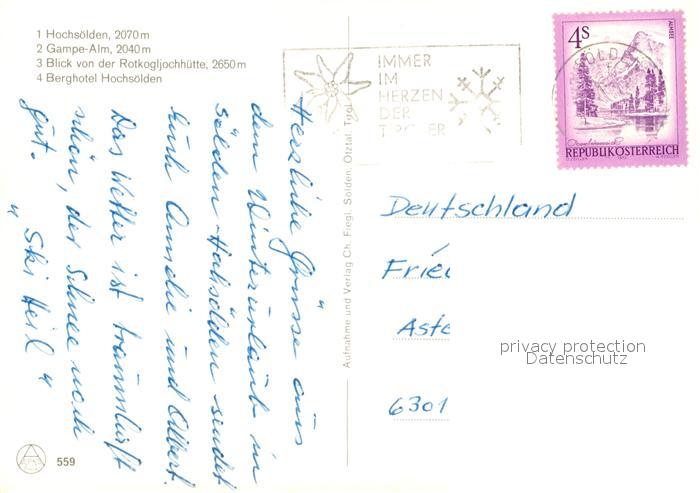 1 Hochsölden, 2070 m
2 Gampe-Alm, 2040 m
3 Blick von der Rotkogljochhütte, 2650 m
4 Berghotel Hochsölden
IMMER
IM
HERZEN
DER
TIROLER
SÖLDEN
4 S
ALMSEE
REPUBLIK ÖSTERREICH
Herzliche Grüsse aus
dem Winterurlaub in
Sölden-Hochsölden sendet
Euch Amelie und Albert.
Das Wetter ist traumhaft
schön, der Schnee noch
gut.
"Ski Heil"
Aufnahme und Verlag Ch. Fiegl, Sölden, Ötztal, Tirol
Deutschland
Frie
Aste
6301
privacy protection
Datenschutz
559